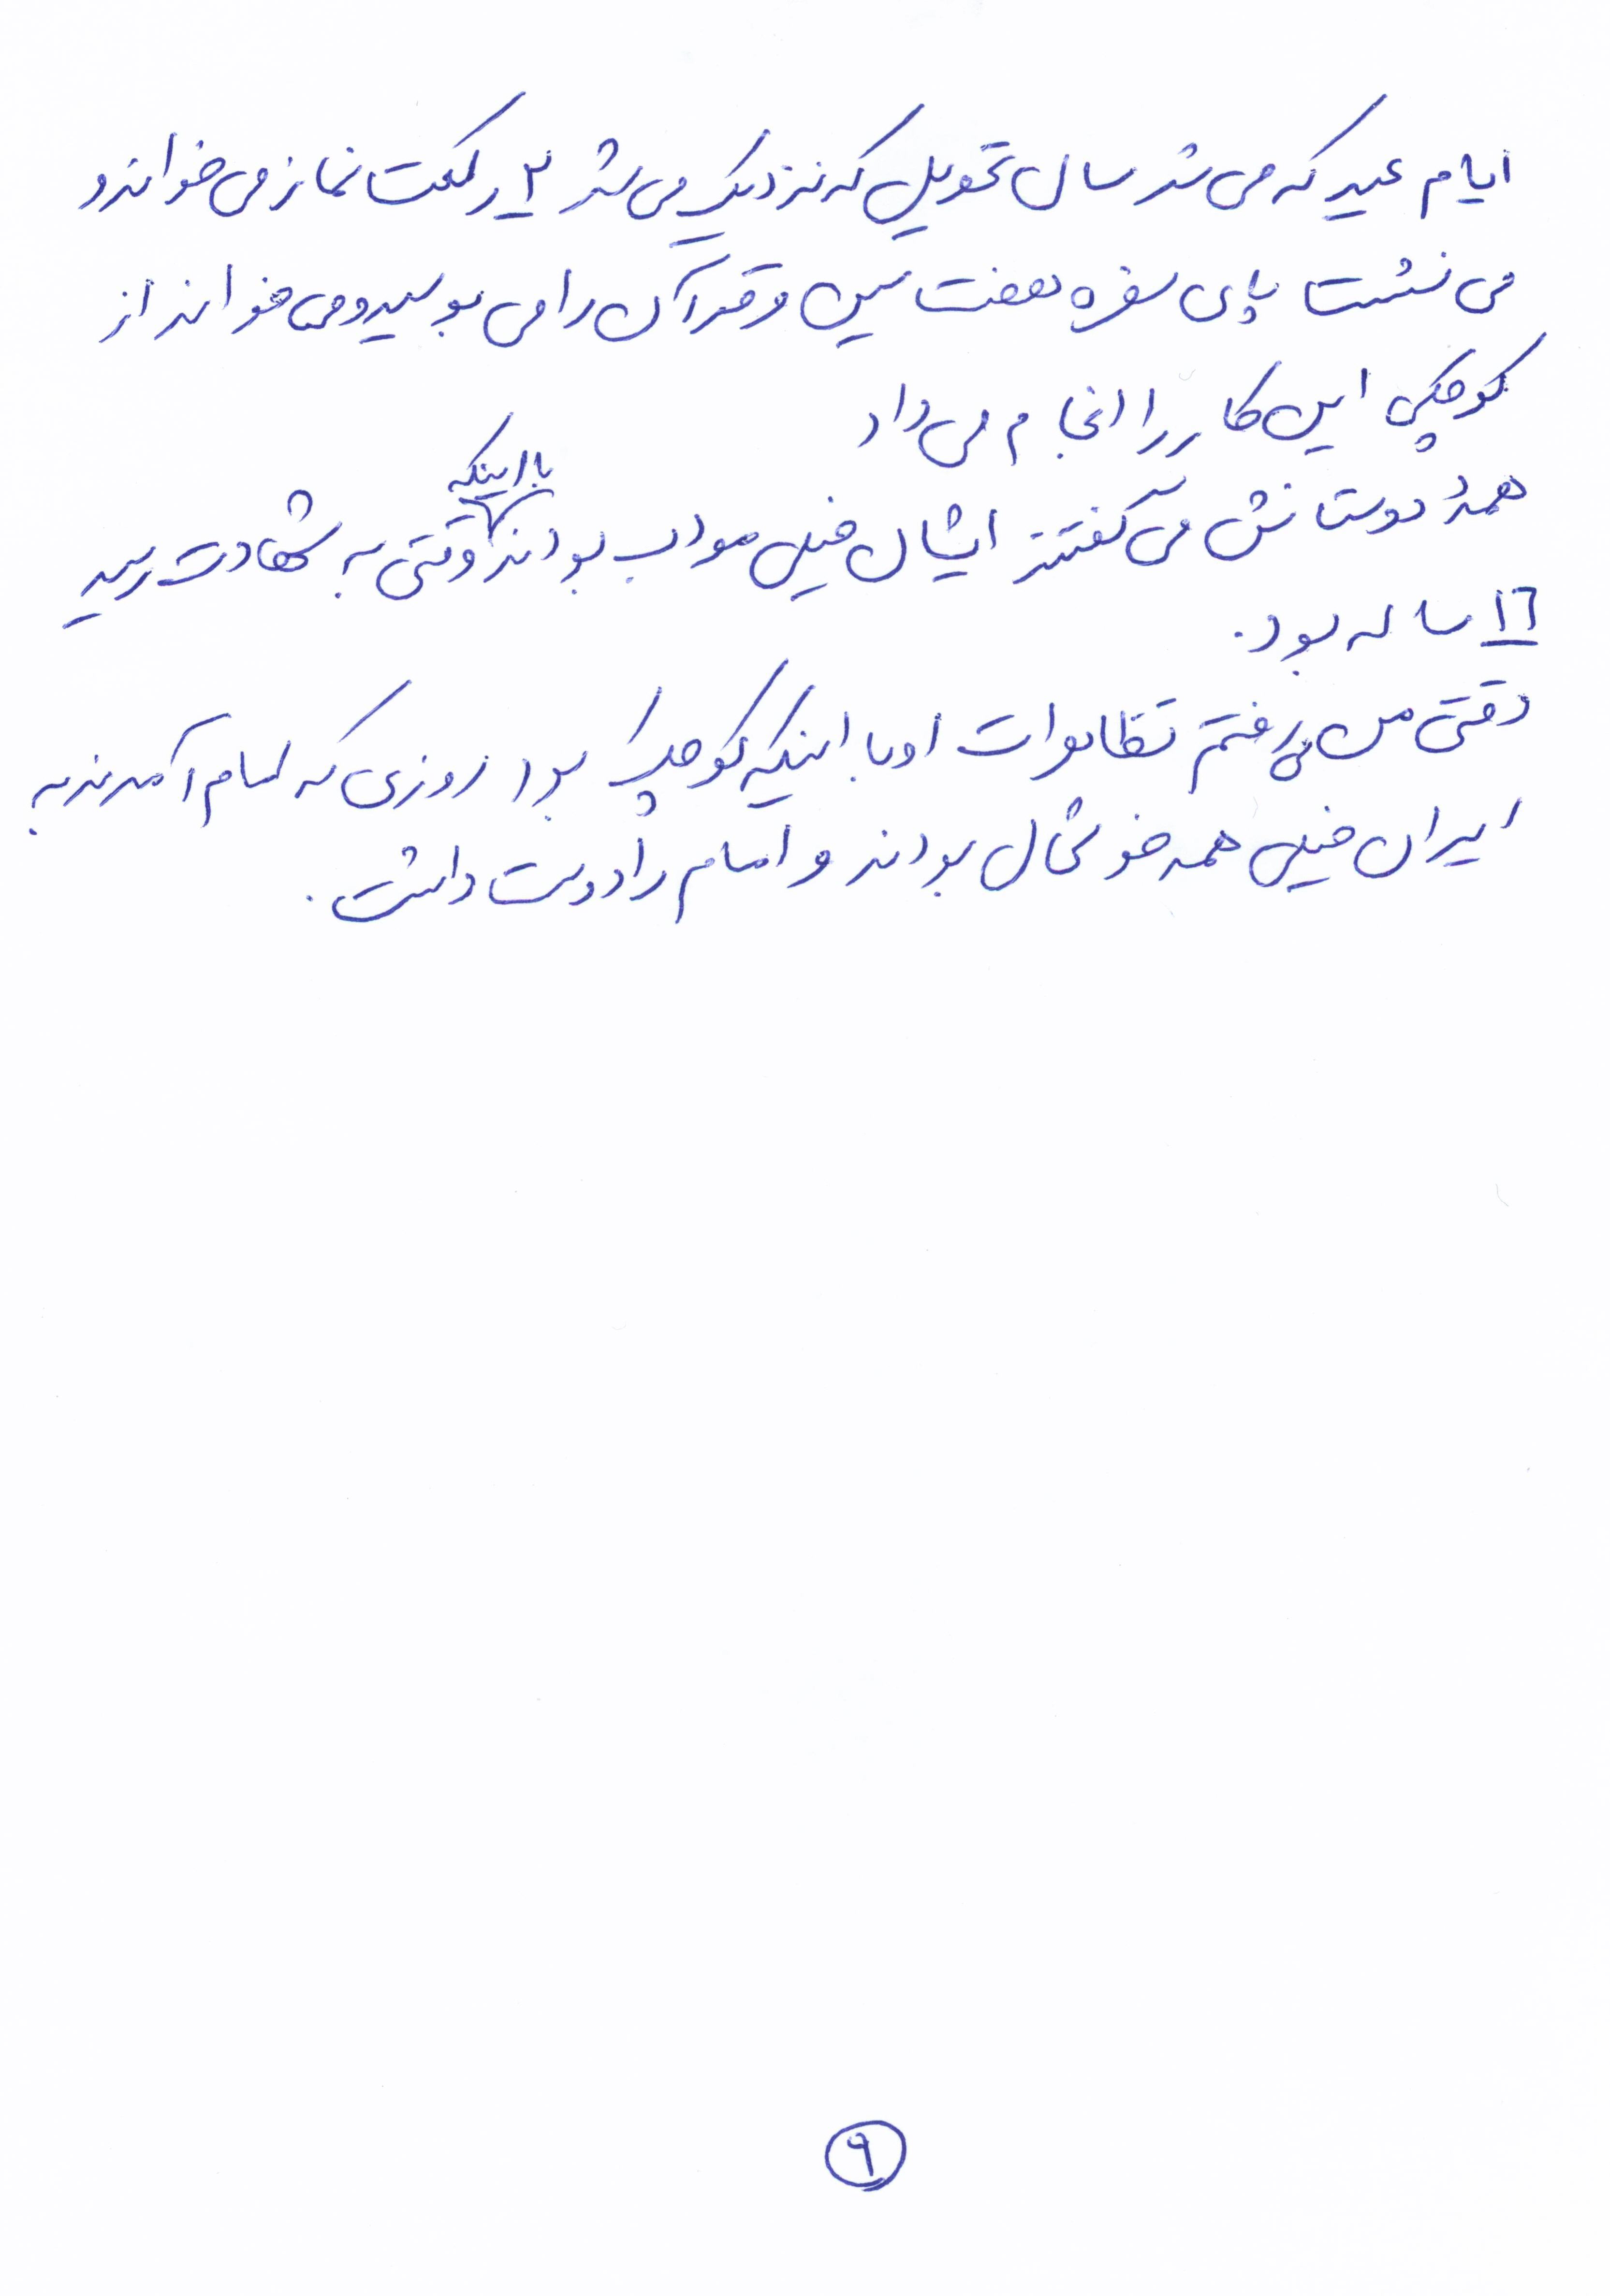 ایام عید که می شد سال تحویل که نزدیک می شد ۲ رکعت نماز می خواند و
می نشست پای سفره هفت سین و قرآن را می بوسید و می خواند از
کوچکی این کار را انجام می داد
همهٔ دوستانش می گفتند ایشان خیلی مودب بودند با اینکه وقتی به شهادت رسید
۱۶ ساله بود.
وقتی من می رفتم تظاهرات او با اینکه کوچک بود روزی که امام آمدند به
ایران خیلی همه خوشحال بودند و امام را دوست داشت.
۹